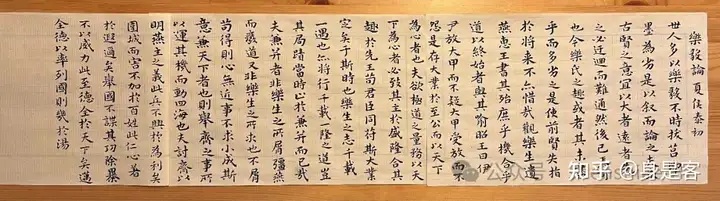 樂毅論 夏侯泰初
世人多以樂毅不時拔莒即
墨為劣是以叙而論之夫求
古賢之意宜以大者遠者先
之必迂迴而難通然後已焉可
也今樂氏之趣或者其未盡
乎而多劣之是使前賢失指
於將來不亦惜哉觀樂生遺
燕惠王書其殆庶乎機合乎
道以終始者與其喻昭王曰伊
尹放大甲而不疑大甲受放而不
怨是存大業於至公而以天下
為心者也夫欲極道之量務以天
下為心者必致其主於盛隆合其
趣於先王苟君臣同符斯大業
定矣于斯時也樂生之志千載
一遇也亦將行千載一隆之道豈
其局蹟當時止於兼并而已哉
夫兼并者非樂生之所屑彊燕
而廢道又非樂生之所求也不屑
苟得則心無近事不求小成斯
意兼天下者也則舉齊之事所
以運其機而動四海也夫討齊以
明燕主之義此兵不興於為利矣
圍城而害不加於百姓此仁心著
於遐邇矣舉國不謀其功除暴
不以威力此至德全於天下矣邁
全德以率列國則幾於湯
公众号
知乎 @身是客